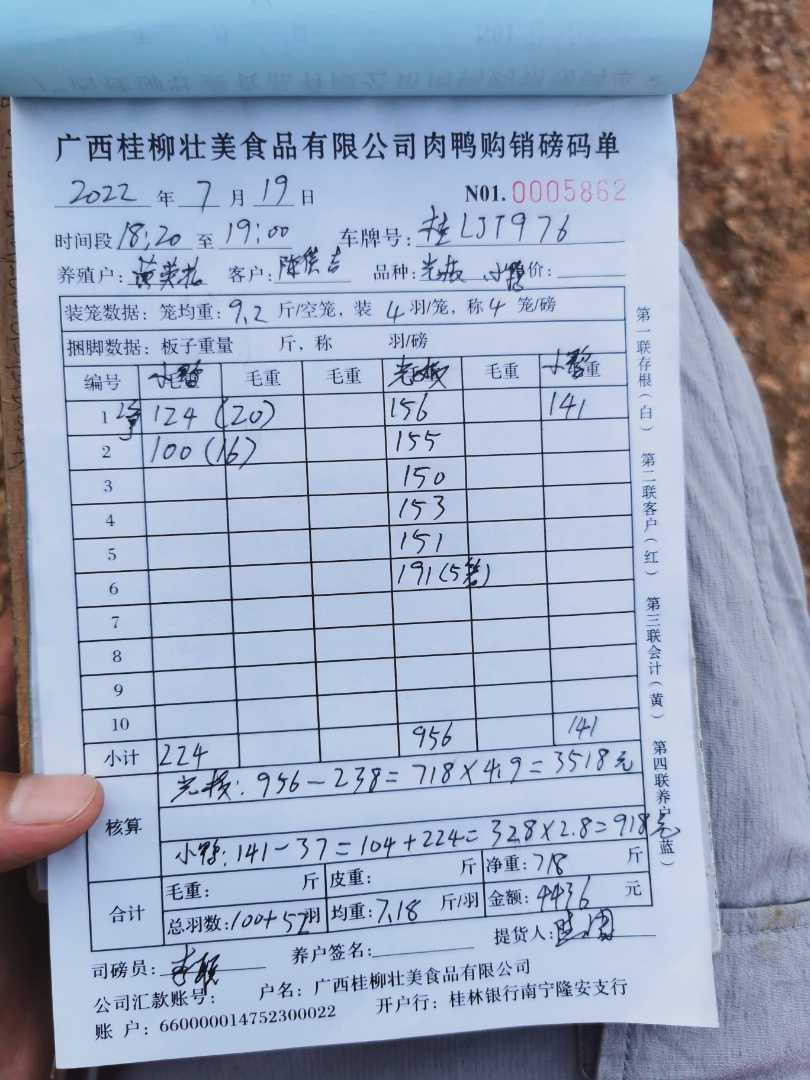 广西桂柳壮美食品有限公司肉鸭购销磅码单
2022 年 7 月 19 日 N01. 0005862
时间段 18:20 至 19:00 车牌号: 桂LJT976
养殖户: 客户: 品种: 价:
装笼数据: 笼均重: 9.2 斤/空笼, 装 4 羽/笼, 称 4 笼/磅
捆脚数据: 板子重量 斤, 称 羽/磅
编号 小鸭 毛重 毛重 毛重 小鸭 重
1 124 (20) 156 141
2 100 (16) 155
3 150
4 153
5 151
6 191 (5笼)
7
8
9
10 141
小计 224 956
核算
956-238=718×4.9=3518元
小鸭: 141-37=104+224=328×2.8=918元
合计
毛重: 斤 皮重: 斤 净重: 718 斤
总羽数: 100+52羽 均重: 7.18 斤/羽 金额: 4436 元
司磅员: 养户签名: 提货人:
公司汇款账号: 户名: 广西桂柳壮美食品有限公司
账 户: 660000014752300022 开户行: 桂林银行南宁隆安支行
第一联存根(白) 第二联客户(红) 第三联会计(黄) 第四联养户(蓝)